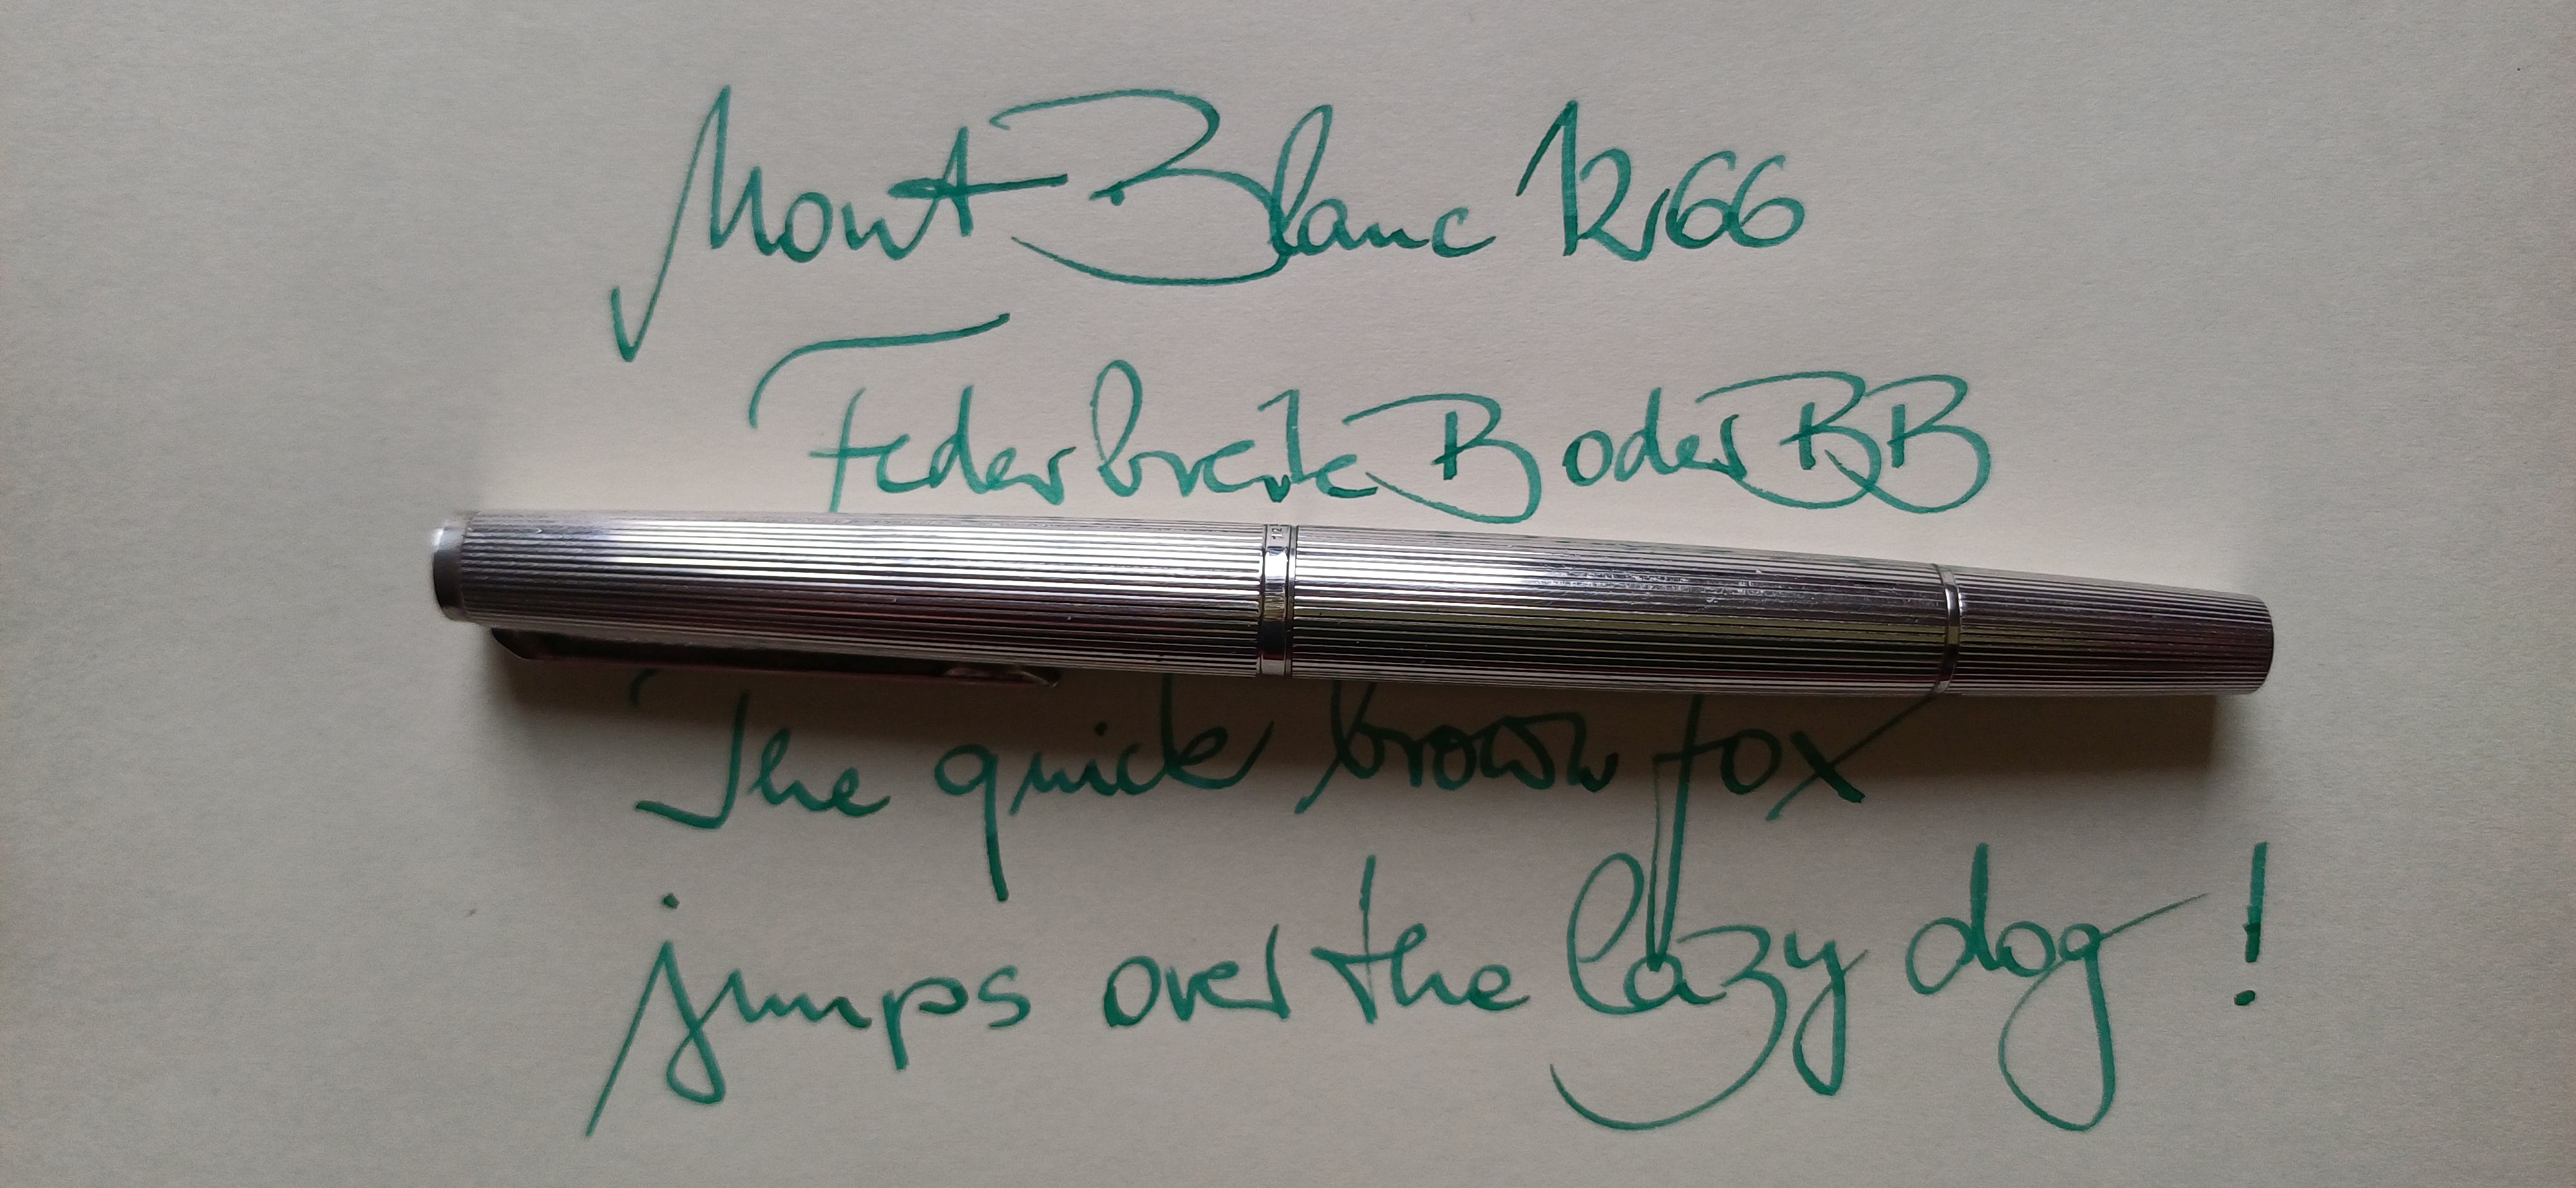 Mont Blanc 1266
Federbreite B oder BB
The quick brown fox
jumps over the lazy dog!